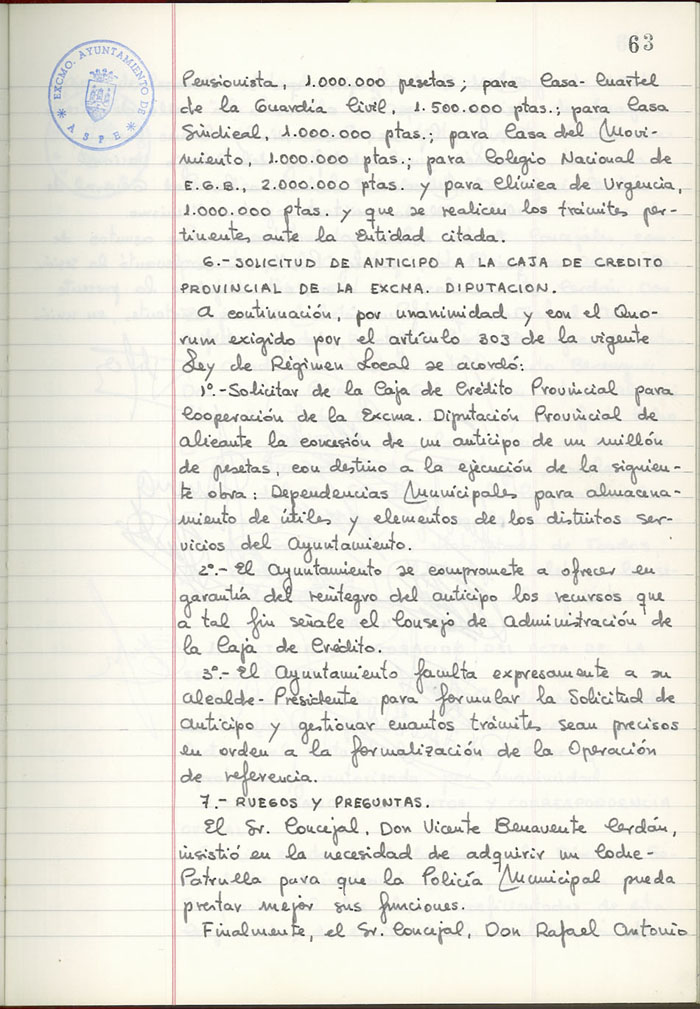 63
EXCMO. AYUNTAMIENTO DE
* ASPE *
Pensionista, 1.000.000 pesetas; para Casa-Cuartel
de la Guardia Civil, 1.500.000 ptas.; para Casa
Sindical, 1.000.000 ptas.; para Casa del Movi-
miento, 1.000.000 ptas.; para Colegio Nacional de
E.G.B., 2.000.000 ptas. y para Clínica de Urgencia,
1.000.000 ptas. y que se realicen los trámites per-
tinentes ante la Entidad citada.
6.- SOLICITUD DE ANTICIPO A LA CAJA DE CREDITO
PROVINCIAL DE LA EXCMA. DIPUTACION.
A continuación, por unanimidad y con el Quo-
rum exigido por el artículo 303 de la vigente
Ley de Régimen Local se acordó:
1º.- Solicitar de la Caja de Crédito Provincial para
Cooperación de la Excma. Diputación Provincial de
Alicante la concesión de un anticipo de un millón
de pesetas, con destino a la ejecución de la siguien-
te obra: Dependencias Municipales para almacena-
miento de útiles y elementos de los distintos ser-
vicios del Ayuntamiento.
2º.- El Ayuntamiento se compromete a ofrecer en
garantía del reintegro del anticipo los recursos que
a tal fin señale el Consejo de Administración de
la Caja de Crédito.
3º.- El Ayuntamiento faculta expresamente a su
Alcalde-Presidente para formular la Solicitud de
Anticipo y gestionar cuantos trámites sean precisos
en orden a la formalización de la Operación
de referencia.
7.- RUEGOS Y PREGUNTAS.
El Sr. Concejal, Don Vicente Benavente Cerdán,
insistió en la necesidad de adquirir un Coche-
Patrulla para que la Policía Municipal pueda
prestar mejor sus funciones.
Finalmente, el Sr. Concejal, Don Rafael Antonio